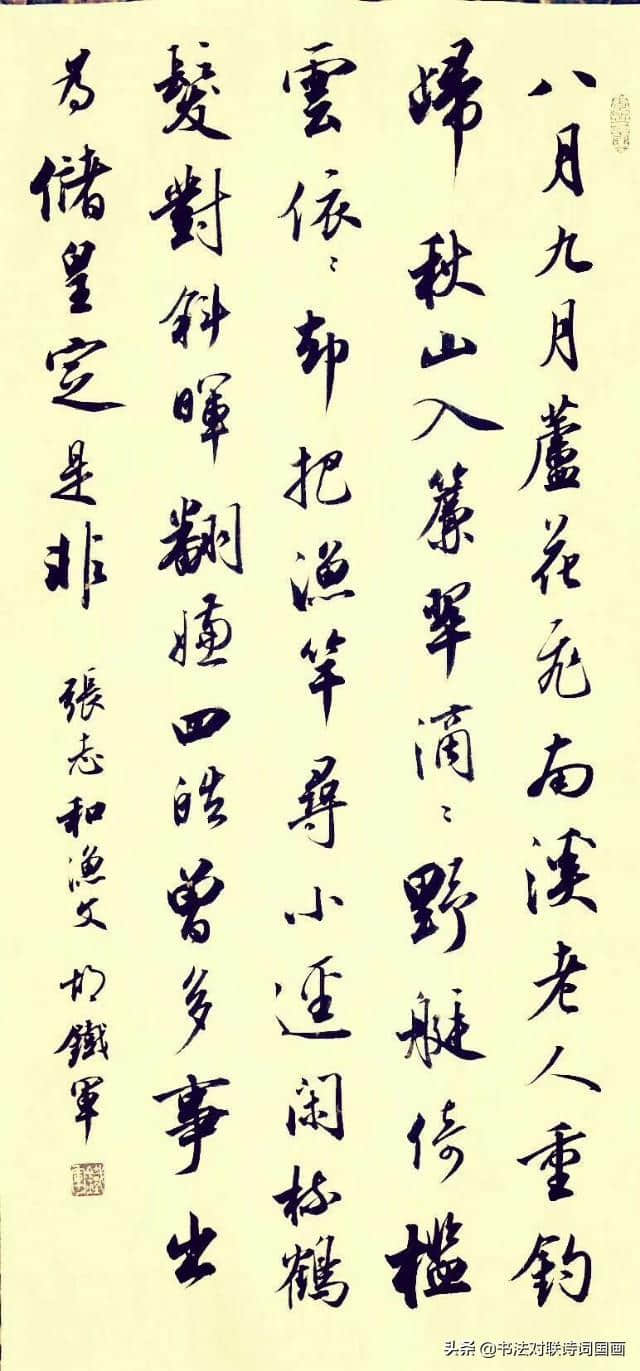 八月九月蘆花飛南溪老人重釣
歸秋山入簾翠滴〻野艇倚檻
雲依〻却把漁竿尋小逕閑梳鶴
髮對斜暉翻嫌四皓曾多事出
為儲皇定是非 張志和漁父 胡鐵軍
头条 @书法对联诗词国画